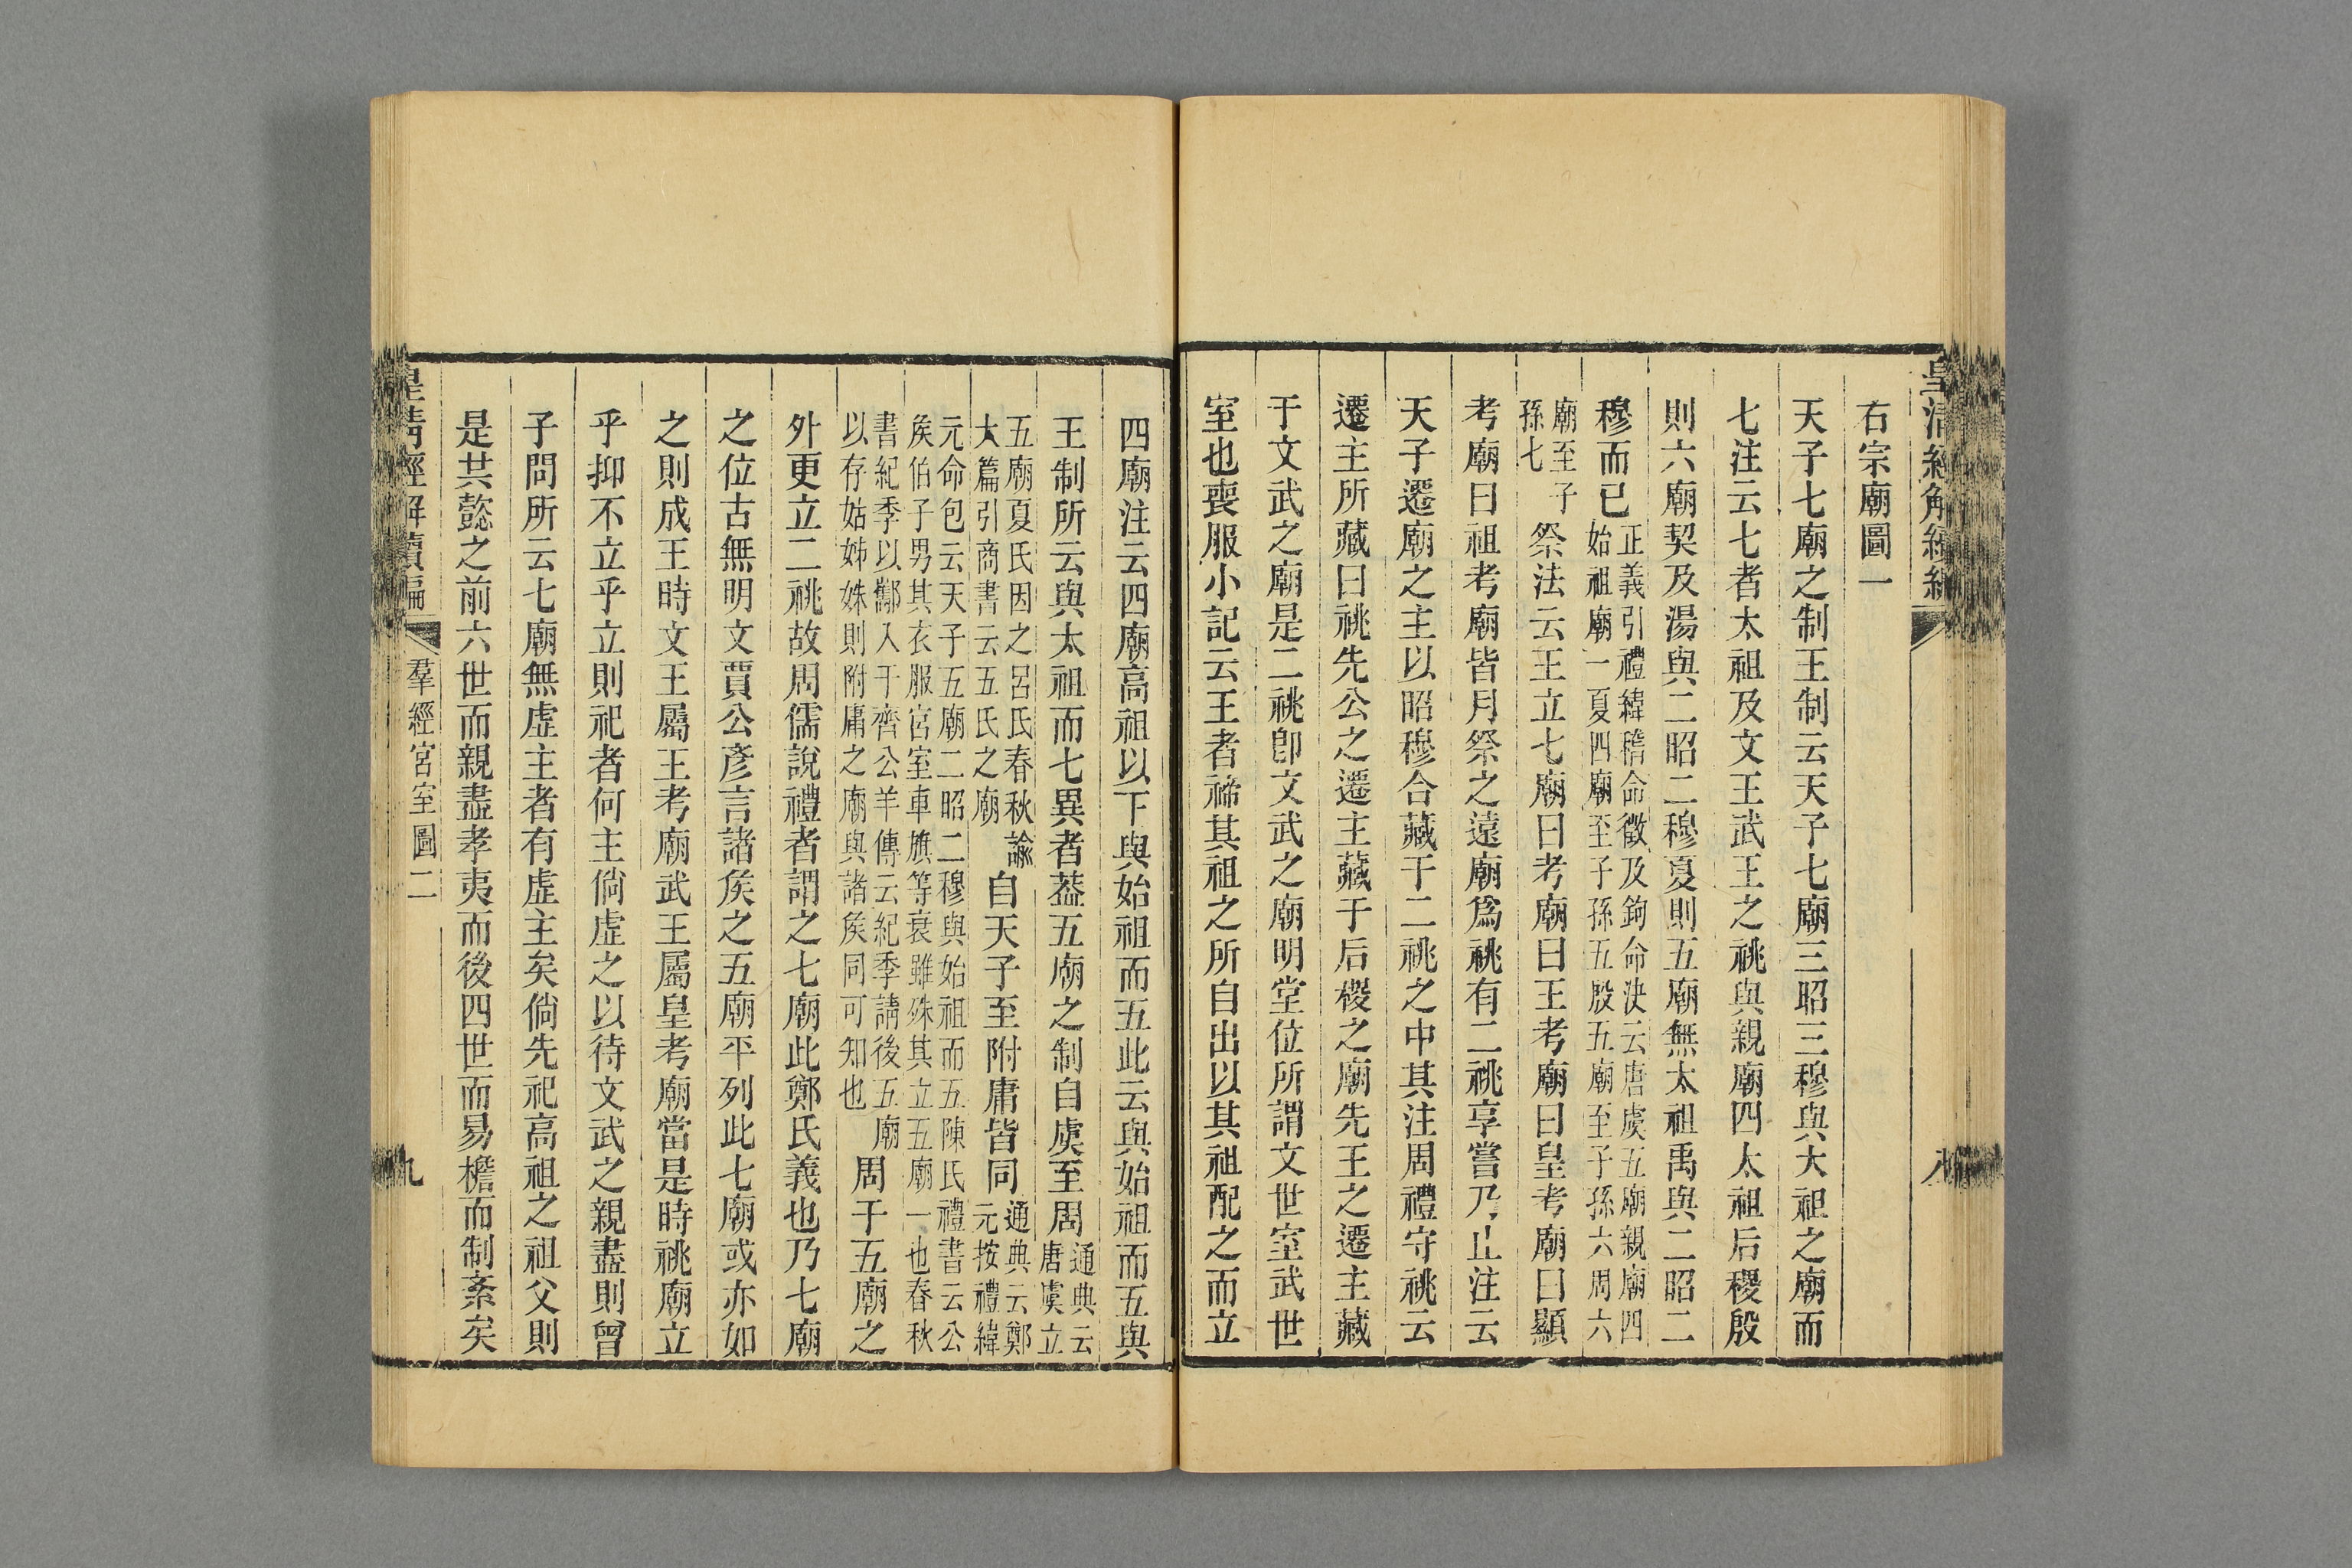 右宗廟圖一
天子七廟之制王制云天子七廟三昭三穆與大祖之廟而
七注云七者太祖及文王武王之祧與親廟四太祖后稷殷
則六廟契及湯與二昭二穆夏則五廟無太祖禹與二昭二
穆而已正義引禮緯稽命徵及鉤命決云唐虞五廟親廟四始祖廟一夏四廟至子孫五殷五廟至子孫六周六
廟至子孫七祭法云王立七廟曰考廟曰王考廟曰皇考廟曰顯
考廟曰祖考廟皆月祭之遠廟爲祧有二祧享嘗乃止注云
天子遷廟之主以昭穆合藏于二祧之中其注周禮守祧云
遷主所藏曰祧先公之遷主藏于后稷之廟先王之遷主藏
于文武之廟是二祧卽文武之廟明堂位所謂文世室武世
室也喪服小記云王者禘其祖之所自出以其祖配之而立
四廟注云四廟高祖以下與始祖而五此云與始祖而五與
王制所云與太祖而七異者葢五廟之制自虞至周通典云唐虞立
五廟夏氏因之呂氏春秋諭大篇引商書云五氏之廟自天子至附庸皆同通典云鄭元按禮緯
元命包云天子五廟二昭二穆與始祖而五陳氏禮書云公矦伯子男其衣服宮室車旗等衰雖殊其立五廟一也春秋
書紀季以酅入于齊公羊傳云紀季請後五廟以存姑姊妹則附庸之廟與諸矦同可知也周于五廟之
外更立二祧故周儒說禮者謂之七廟此鄭氏義也乃七廟
之位古無明文賈公彥言諸矦之五廟平列此七廟或亦如
之則成王時文王屬王考廟武王屬皇考廟當是時祧廟立
乎抑不立乎立則祀者何主倘虛之以待文武之親盡則曾
子問所云七廟無虛主者有虛主矣倘先祀高祖之祖父則
是共懿之前六世而親盡孝夷而後四世而易檐而制紊矣
皇清經解續編
羣經宮室圖二
九